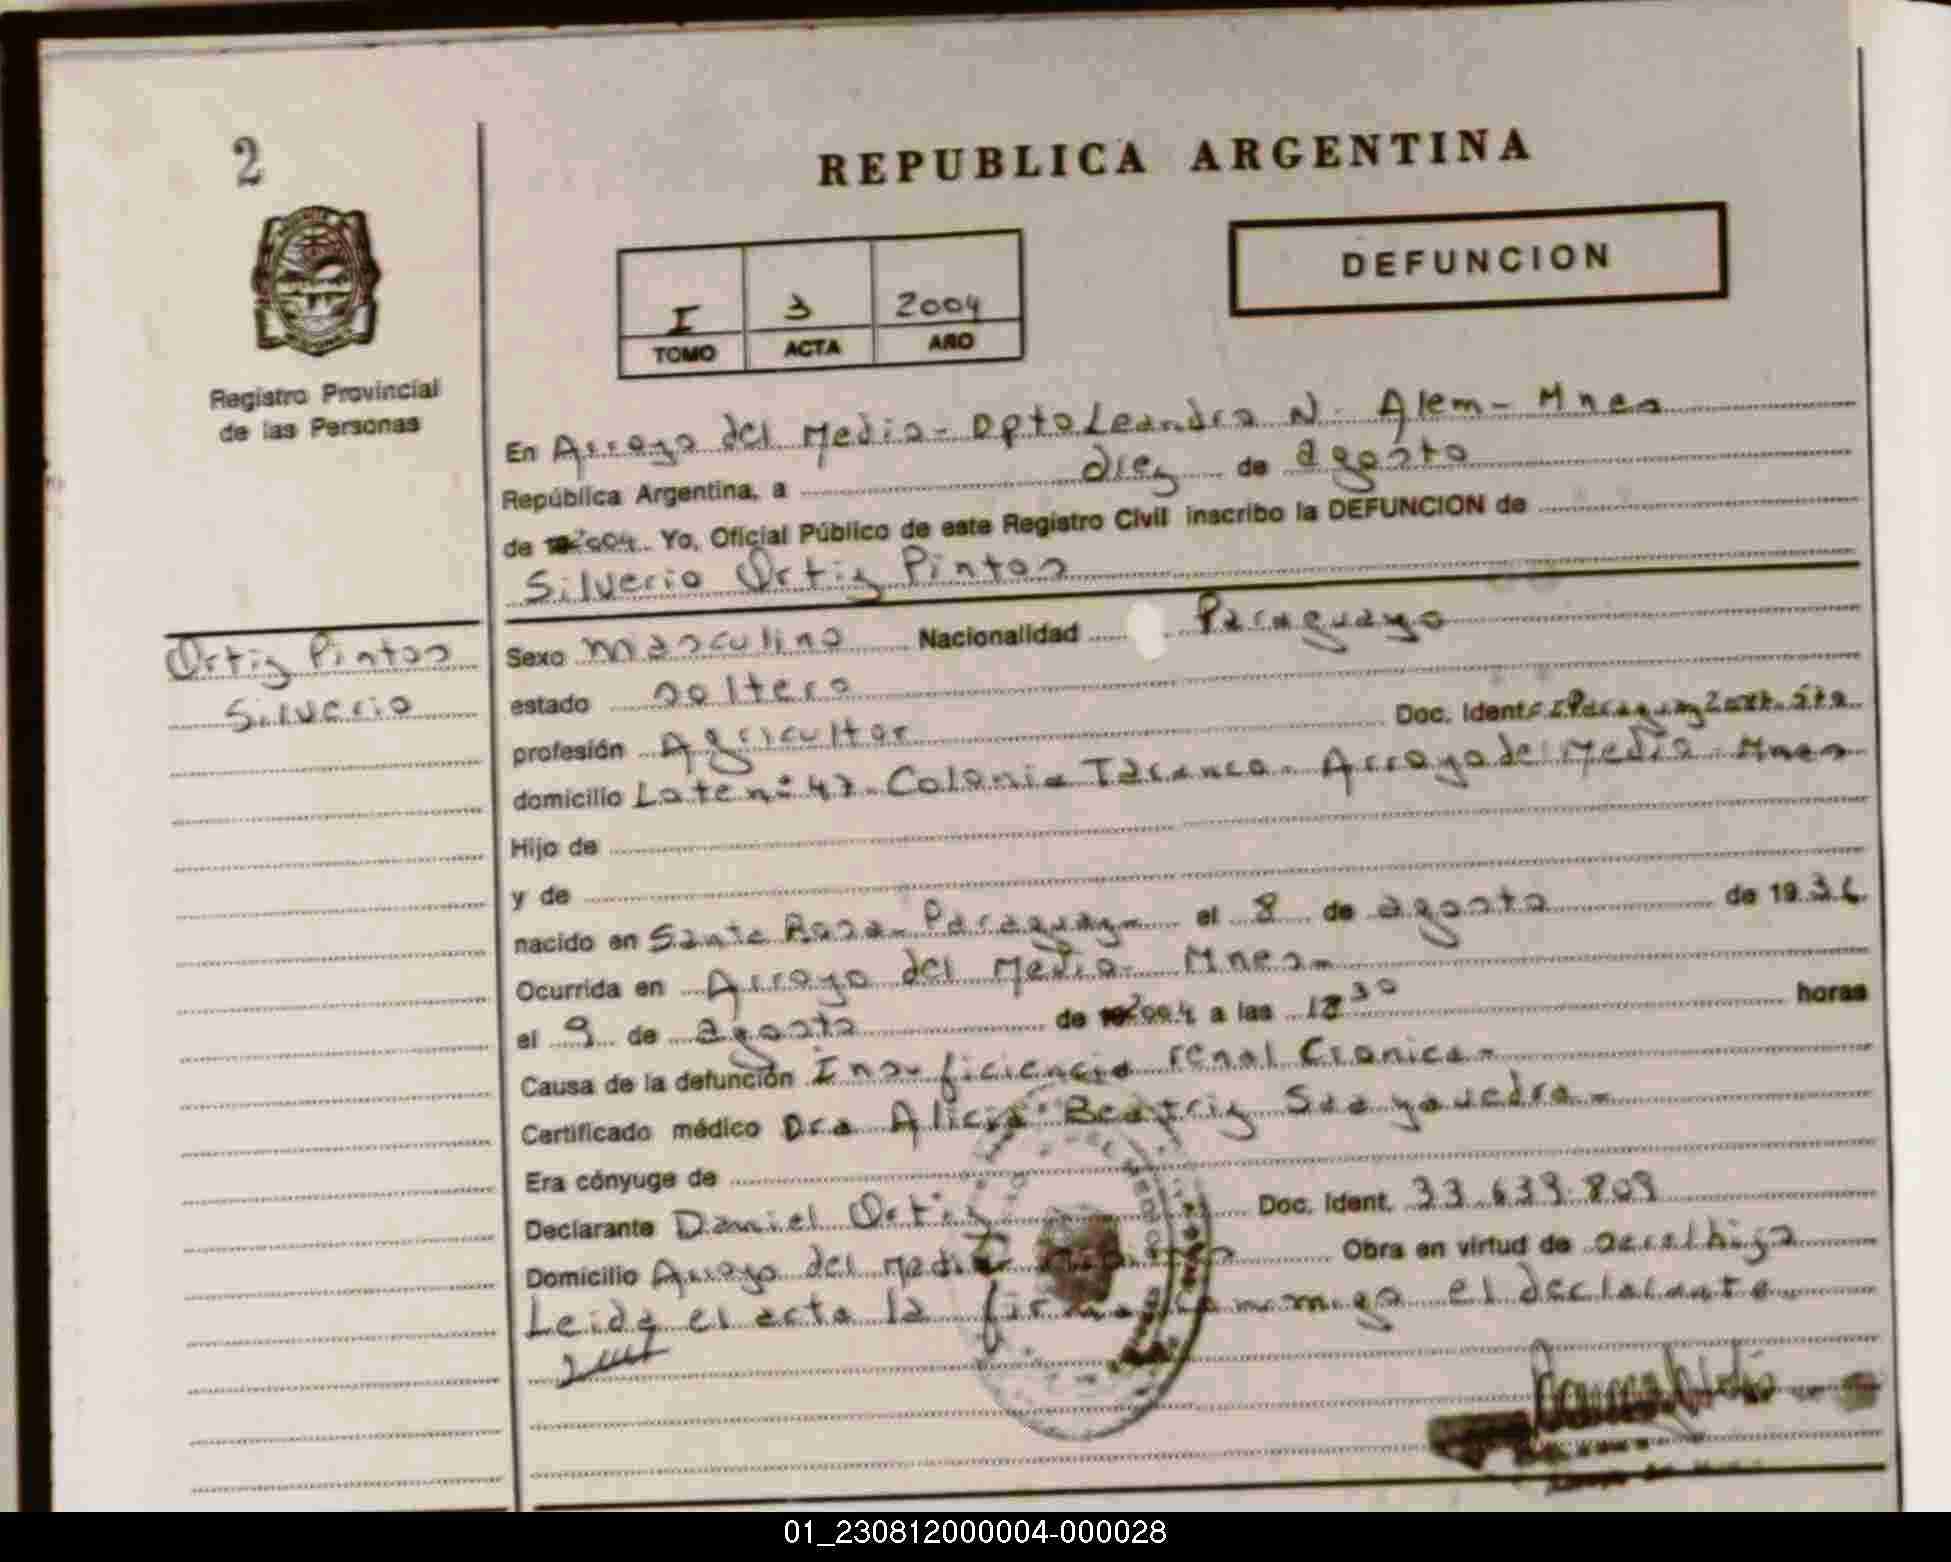 2
REPUBLICA ARGENTINA
DEFUNCION
I 3 2004
TOMO ACTA AÑO
Registro Provincial
de las Personas
En Arroyo del Medio - Dpto Leandro N. Alem - Mnes
República Argentina, a diez de agosto
de 2004. Yo, Oficial Público de este Registro Civil inscribo la DEFUNCION de
Silverio Ortiz Pintos
Ortiz Pintos
Silverio
Sexo masculino Nacionalidad Paraguayo
estado soltero
profesión Agricultor Doc. Ident.
domicilio Lote nº 47 - Colonia Taranco - Arroyo del Medio - Mnes
Hijo de
y de
nacido en Santa Rosa - Paraguay - el 8 de agosto de 1936
Ocurrida en Arroyo del Medio - Mnes -
el 9 de agosto de 2004 a las 18 30 horas
Causa de la defunción Insuficiencia renal Cronica -
Certificado médico Dra Alicia Beatriz Saayavedra -
Era cónyuge de
Declarante Daniel Ortiz Doc. Ident. 33.639.809
Domicilio Arroyo del Medio Obra en virtud de ser el hijo
Leida el acta la firma conmigo el declarante
01_230812000004-000028